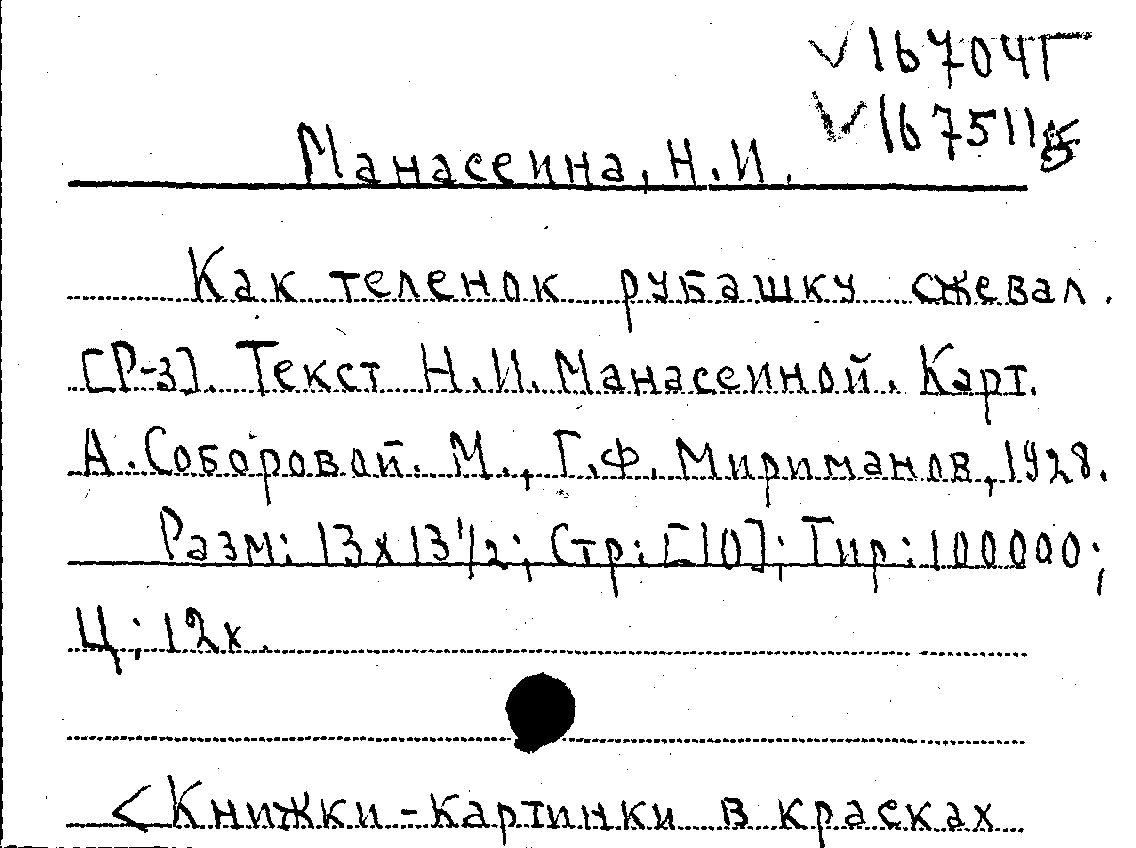 √16704Г
√167511Б
Манасеина, Н.И.
Как теленок рубашку сжевал.
[Р-з]. Текст Н.И. Манасеиной. Карт.
А. Соборовой. М., Г.Ф. Мириманов, 1928.
Разм: 13х13 1/2; Стр: [10]; Тир: 100000;
Ц: 12к.
<Книжки-картинки в красках